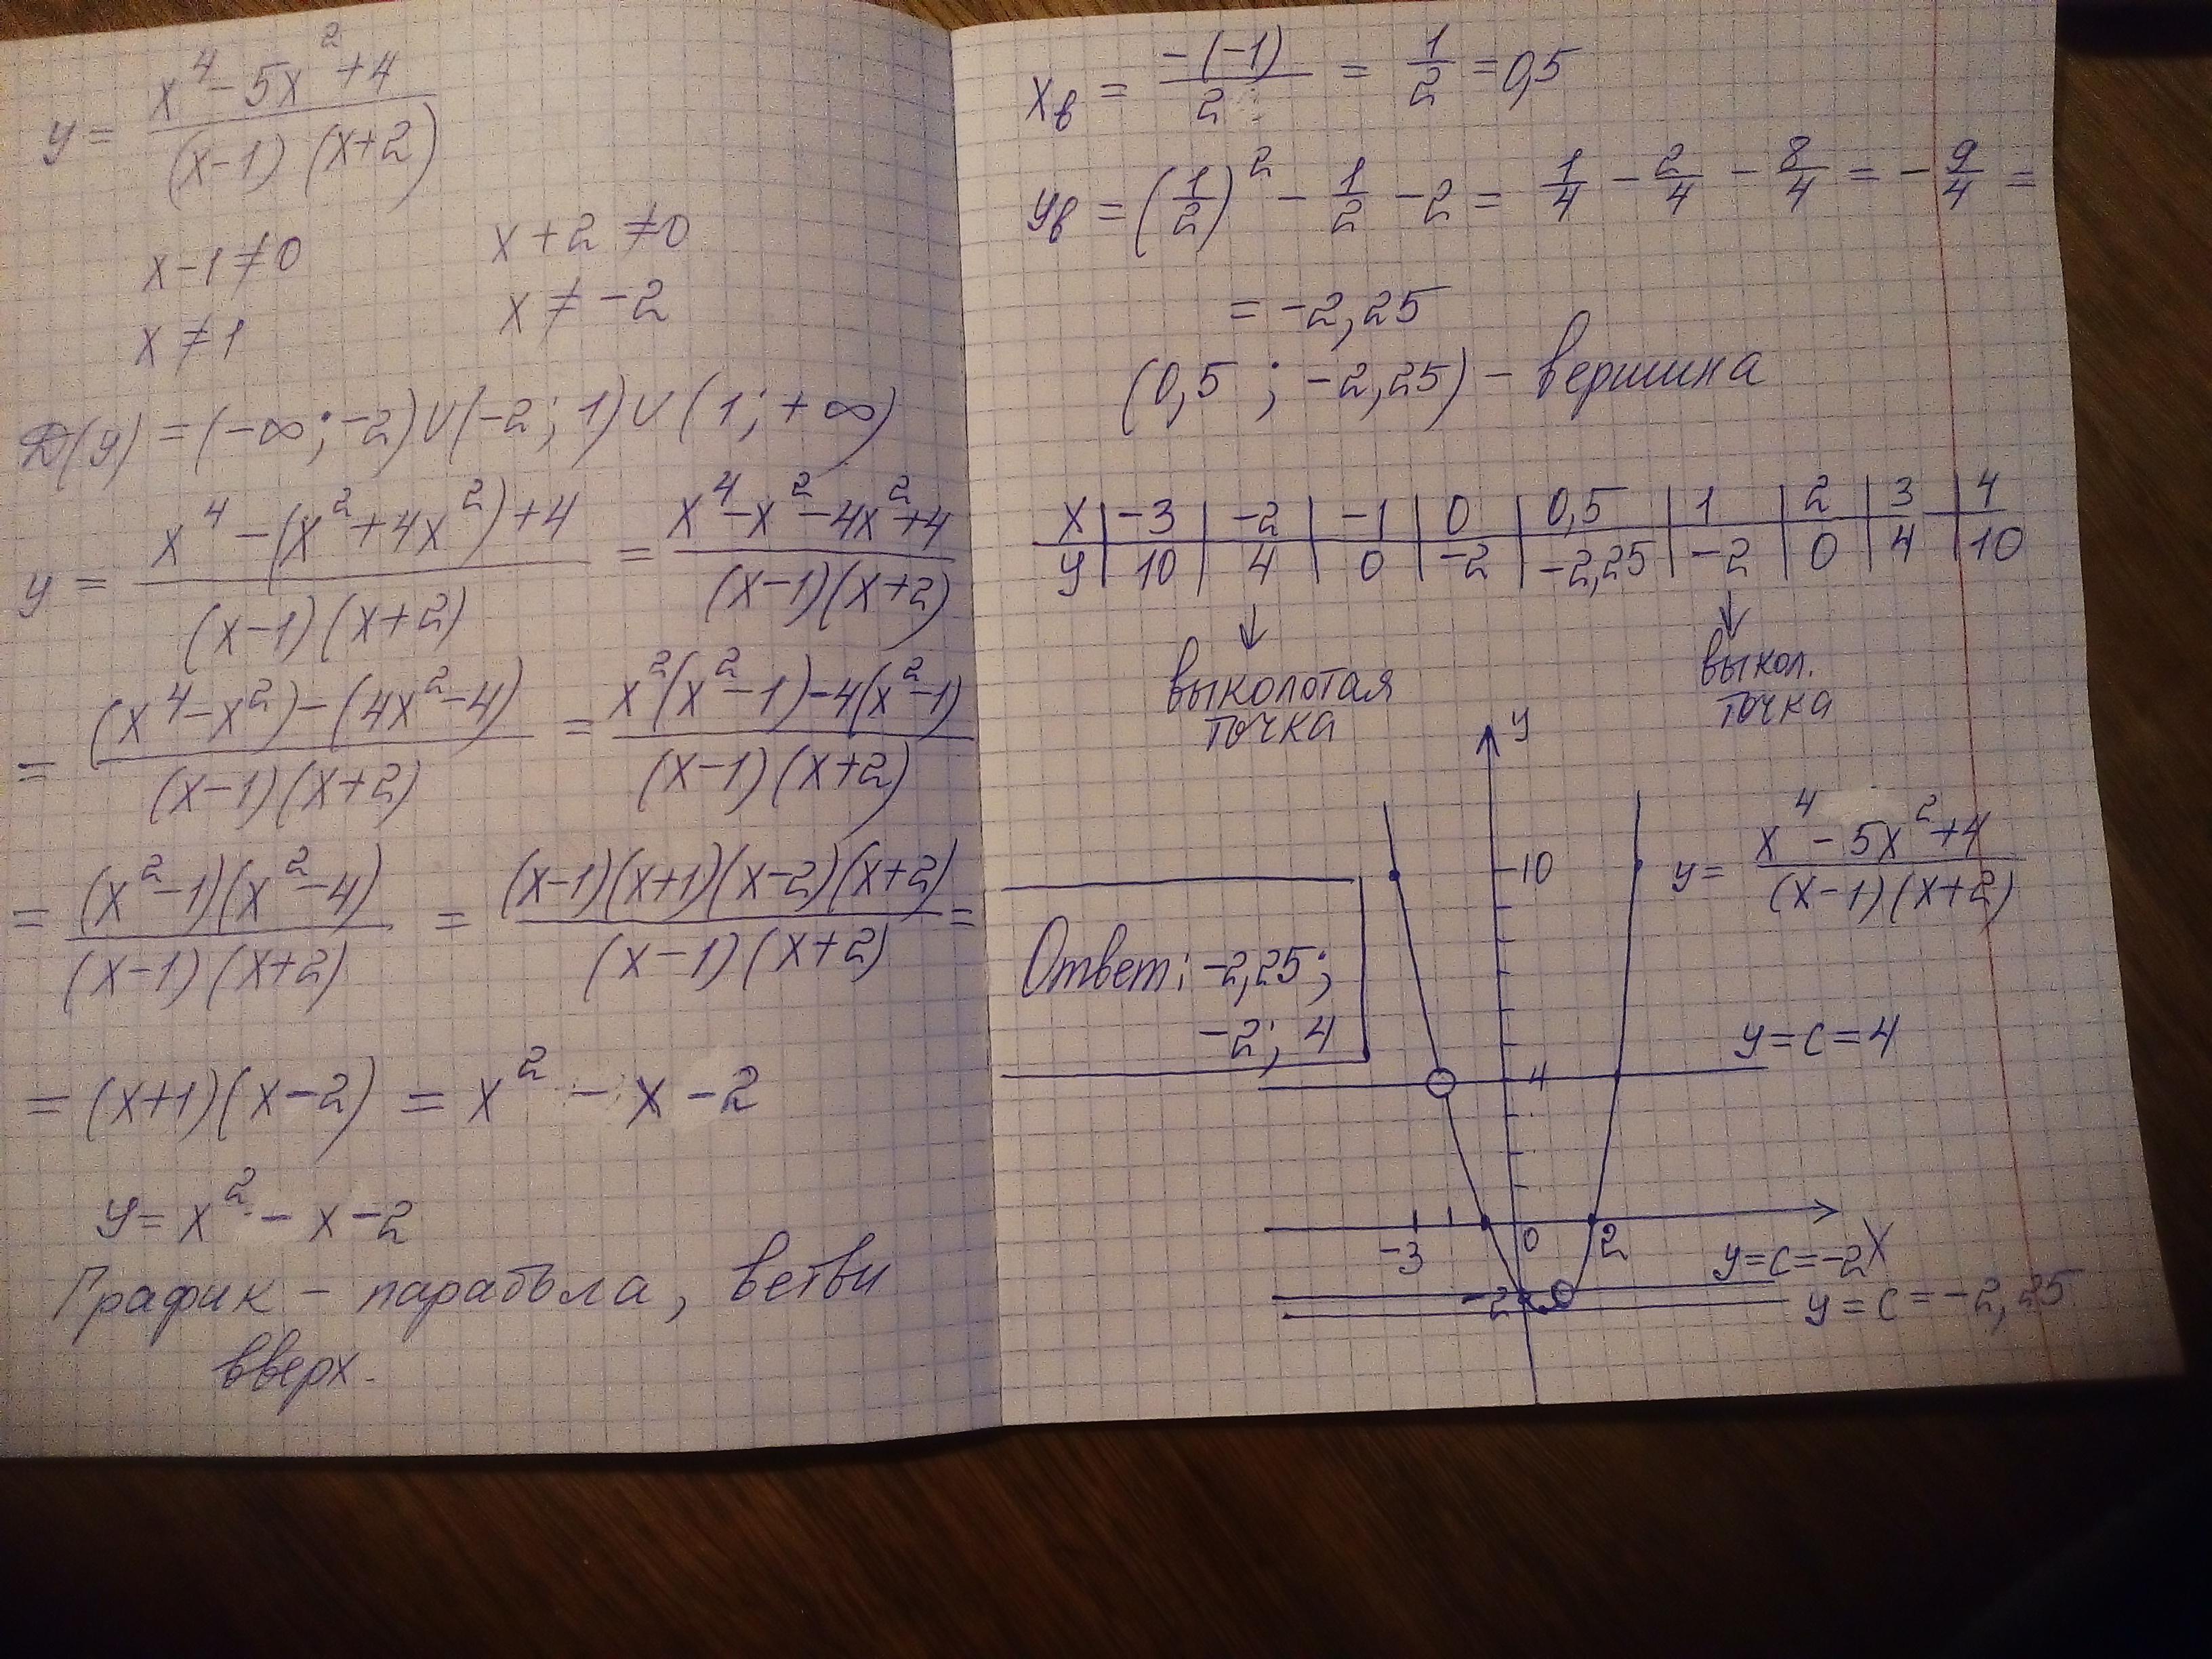 y = (x⁴ - 5x² + 4) / ((x-1)(x+2))
x - 1 ≠ 0    x + 2 ≠ 0
x ≠ 1    x ≠ -2
D(y) = (-∞; -2) ∪ (-2; 1) ∪ (1; +∞)
y = (x⁴ - (x² + 4x²) + 4) / ((x-1)(x+2)) = (x⁴ - x² - 4x² + 4) / ((x-1)(x+2))
= ((x⁴ - x²) - (4x² - 4)) / ((x-1)(x+2)) = (x²(x² - 1) - 4(x² - 1)) / ((x-1)(x+2))
= ((x² - 1)(x² - 4)) / ((x-1)(x+2)) = ((x-1)(x+1)(x-2)(x+2)) / ((x-1)(x+2)) =
= (x+1)(x-2) = x² - x - 2
y = x² - x - 2
График - парабола, ветви
вверх.
xв = -(-1) / 2 = 1/2 = 0,5
yв = (1/2)² - 1/2 - 2 = 1/4 - 2/4 - 8/4 = -9/4 =
= -2,25
(0,5 ; -2,25) - вершина
x | -3 | -2 | -1 | 0 | 0,5 | 1 | 2 | 3 | 4
y | 10 | 4 | 0 | -2 | -2,25 | -2 | 0 | 4 | 10
↓ ↓
выколотая
точка
выкол.
точка
y
10
y = (x⁴ - 5x² + 4) / ((x-1)(x+2))
Ответ: -2,25;
-2; 4
y = c = 4
4
-3 0 2
x
y = c = -2
-2
y = c = -2,25